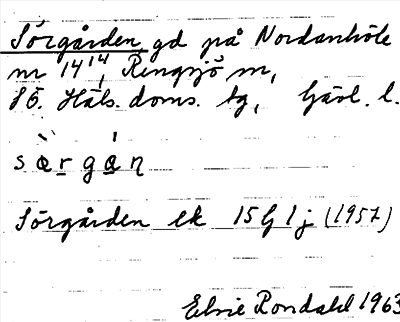 Sörgården gd på Nordanhöle
nr 14¹⁴, Rengsjö sn,
SÖ. Häls. doms. tg, Gävl. l.
særgaṇ
Sörgården ek 15G1j (1957)
Elsie Rondahl 1963